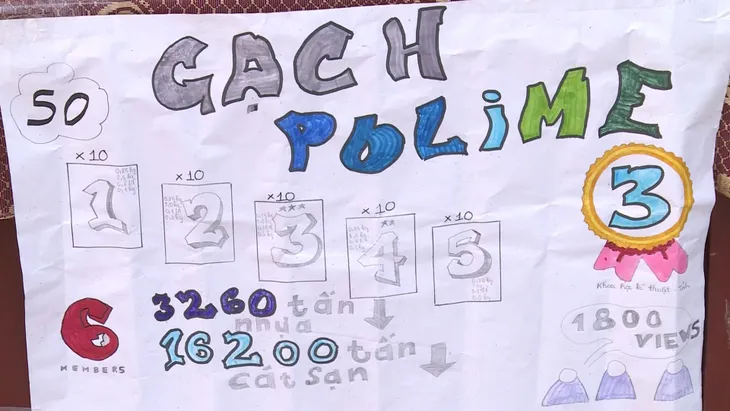 GẠCH
POLiME
50
x 10
1
x 10
2
x10
3
x 10
4
x 10
5
3
Khoa học kĩ thuật
6
MEMBERS
3260 tấn
nhựa
16200 tấn
cát sạn
1800
VIEWS